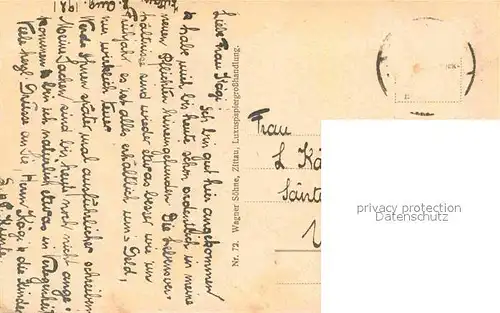 Aug. 1921
Liebe Frau Kägi!
Ich bin gut hier angekommen
u habe mich bis heute schon ordentlich in meine
neuen Pflichten hineingefunden. Die Lebensver-
hältnisse sind wieder etwas besser wie im
Frühjahr, es ist alles erhältlich um's Geld,
nur wirklich teuer.
Werde Ihnen später mal ausführlicher schreiben
Meine Sachen sind bis heute noch nicht ange-
kommen u bin ich natürlich etwas in Verlegenheit
Viele herzl. Grüsse an Sie, Herrn Kägi u die Kinder
Nr. 72. Wagner Söhne, Zittau, Luxuspapiergroßhandlung.
Frau
L. Kä
privacy protection
Datenschutz